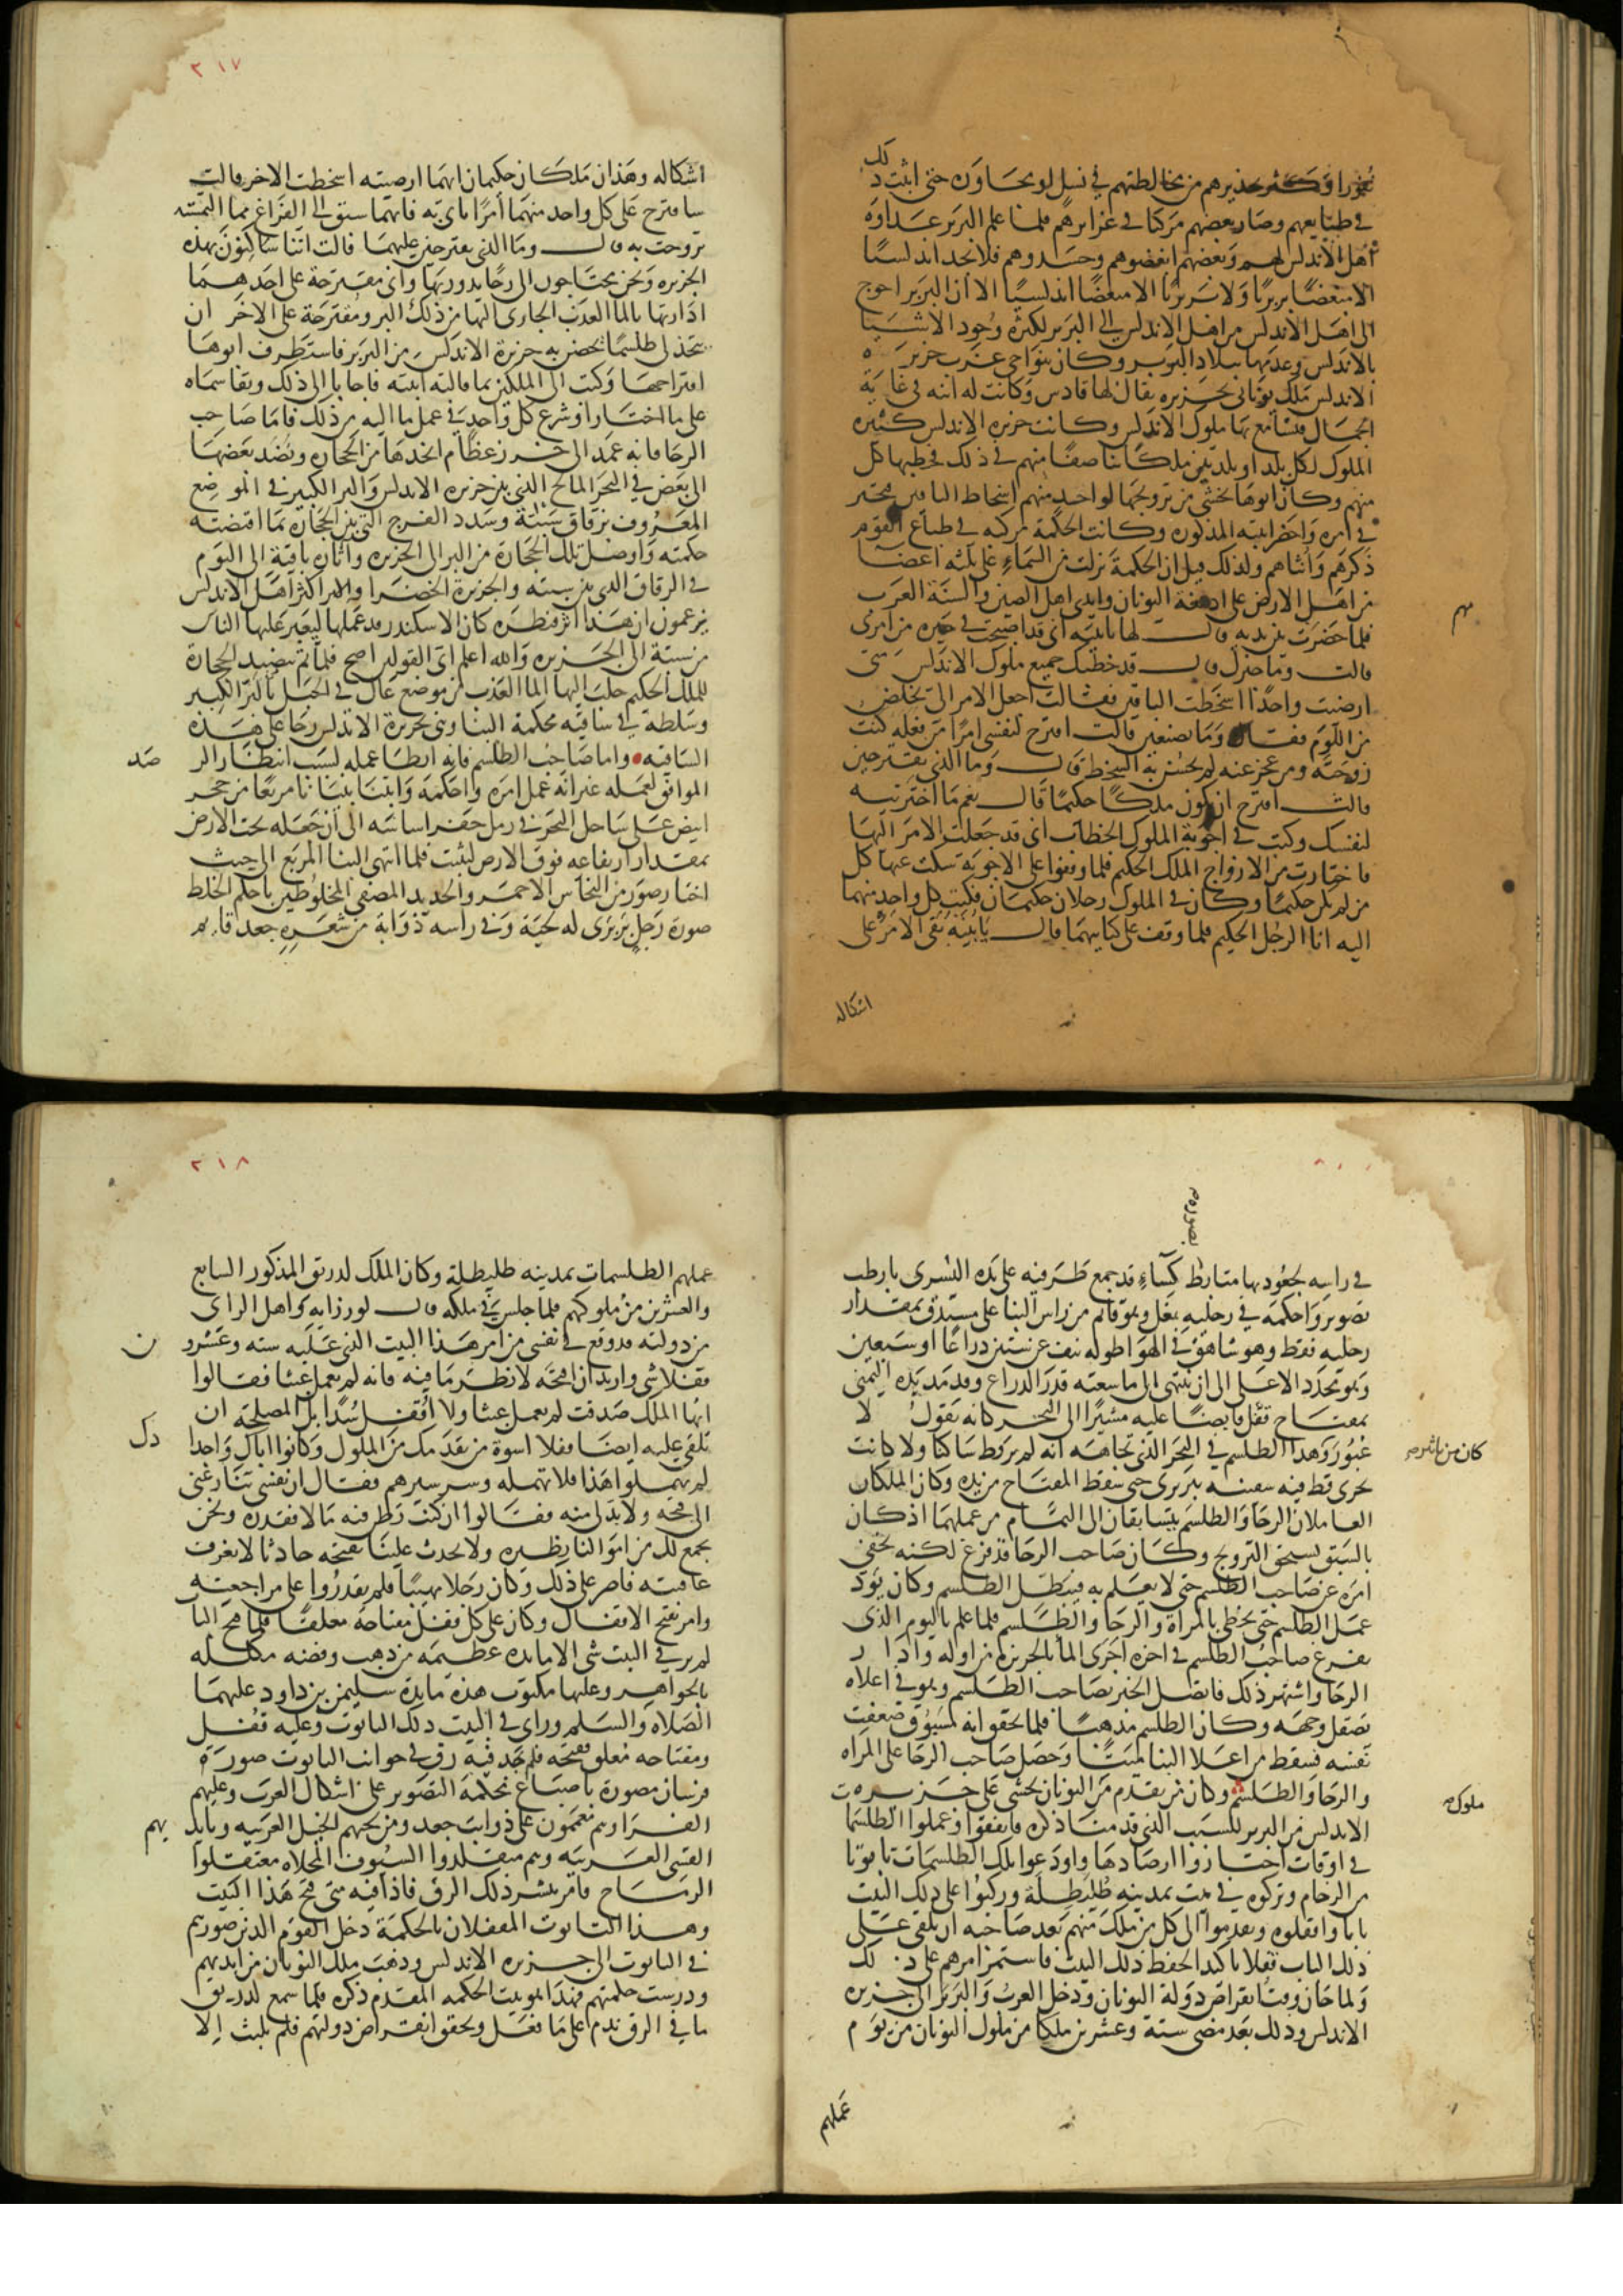 نفورا وكثر تحذيرهم من مخالطتهم في نسل او مجاورة حتى اثبت ذلك
في طبايعهم وصار بعضهم مركبا في غرايزهم فلما علم البربر عداوة
اهل الاندلس لهم وبغضهم ابغضوهم وحسدوهم فلا تجد اندلسيًا
الا مبغضًا بربريًا ولا بربريًا الا مبغضًا اندلسيًا الا أن البربر احوج
الى اهل الاندلس من اهل الاندلس الى البربر لكثرة وجود الاشيا
بالاندلس وعدمها ببلاد البربر وكان بنواحي غرب جزيرة
الاندلس ملك يوناني بجزيرة يقال لها قادس وكانت له ابنه في غاية
الجمال فتسامع بها ملوك الاندلس وكانت جزيرة الاندلس كثيرة
الملوك لكل بلد او بلدتين ملك تناصفًا منهم في ذلك فخطبها كل
منهم وكان ابوها يخشى من تزويجها لواحد منهم اسخاط الباقين فتحير
في امره واحضر ابنته المذكورة وكانت الحكمة مركبة في طباع القوم
ذكرهم وانثاهم ولذلك قيل ان الحكمة نزلت من السماء على ثلثة اعضا
من اهل الارض على ادمغة اليونان وايدي اهل الصين والسنة العرب
مهم
فلما حضرت بين يديه قال لها يا بنية اني قد اصبحت في حيرة من امري
قالت وما حيرك قال قد خطبك جميع ملوك الاندلس متى
ارضيت واحدًا اسخطت الباقين فقالت اجعل الامر الي تخلص
من اللوم فقال وما تصنعين قالت اقترح لنفسي امرًا من فعله كنت
زوجته ومن عجز عنه لم يحسن به السخط قال وما الذي تقترحين
قالت اقترح ان يكون ملكًا حكيمًا قال نعم ما اخترتيه
لنفسك وكتب في اجوبة الملوك الخطاب اني قد جعلت الامر اليها
فاختارت من الازواج الملك الحكيم فلما وقفوا على الاجوبة سكت عنها كل
من لم يكن حكيمًا وكان في الملوك رجلان حكيمان فكتب كل واحد منهما
اليه انا الرجل الحكيم فلما وقف على كتابيهما قال يا بنية بقي الامر على
اشكاله
٢١٧
اشكاله وهذان ملكان حكيمان ايهما ارضيته اسخطت الاخر قالت
ساقترح على كل واحد منهما أمرًا ياتي به فايهما سبق الى الفراغ مما التمسته
تزوجت به قال وما الذي تقترحين عليهما قالت اننا ساكنون بهذه
الجزيرة ونحن محتاجون الى رحًا ندور بها واني مقترحة على احدهما
ادارتها بالما العذب الجاري اليها من ذلك البر ومقترحة على الاخر ان
يتخذ لي طلسمًا نحصن به جزيرة الاندلس من البربر فاستظرف ابوها
اقتراحها وكتب الى الملكين بما قالته ابنته فاجابا الى ذلك وتقاسماه
على ما اختارا وشرع كل واحد في عمل ما اليه من ذلك فاما صاحب
الرحا فانه عمد الى خرز عظام اتخذها من الحجارة ونضد بعضها
الى بعض في البحر المالح الذي بين جزيرة الاندلس والبر الكبير في الموضع
المعروف بزقاق سبتة وسدد الفرج التي بين الحجارة بما اقتضته
حكمته واوصل تلك الحجارة من البر الى الجزيرة واثاره باقية الى اليوم
في الزقاق الذي بين سبتة والجزيرة الخضرا واكثر اهل الاندلس
يزعمون ان هذا اثر قنطرة كان الاسكندر قد عملها ليعبر عليها الناس
من سبتة الى الجزيرة والله اعلم اي القولين اصح فلما تم تنضيد الحجارة
للملك الحكيم جلب اليها الما العذب من موضع عال في الجبل بالبر الكبير
وسلطه في ساقية محكمة البنا وبنى بجزيرة الاندلس رحا على هذه
الساقيه واما صاحب الطلسم فانه ابطا عمله لسبب انتظار الر
صد
الموافق لعمله غير انه عمل امره واحكمه وابتنا بنيانا مربعًا من حجر
ابيض على ساحل البحر في رمل حفر اساسه الى ان جعله تحت الارض
بمقدار ارتفاعه فوق الارض ليثبت فلما انتهى البنا المربع الى حيث
اختار صور من النحاس الاحمر والحديد المصفى المخلوطين باحكم الخلط
صورة رجل بربري له لحية وفي راسه ذوابة من شعره جعد قايم
في راسه لجعودتها متابط كساء قد جمع طرفيه على يده اليسرى بارطب
تصوير واحكمه في رجليه نعل وهو قايم من راس البنا على مستدق بمقدار
رجليه فقط وهو شاهق في الهوا طوله نيف عن ستين ذراعًا او سبعين
وهو محدد الاعلى الى ان ينتهي الى ما سعته قدر الذراع وقد مد يده اليمنى
بمفتاح قفل قابضًا عليه مشيرًا الى البحر كانه يقول لا
عبور وهذا الطلسم في البحر الذي تجاهه انه لم ير قط ساكنا ولا كانت
كان من تاثيره
تجري قط فيه سفينه بربري حتى سقط المفتاح من يده وكان الملكان
العاملان الرحا والطلسم يتسابقان الى التمام من عملهما اذ كان
بالسبق يستحق التزويج وكان صاحب الرحا قد فرغ لكنه يخفي
امره عن صاحب الطلسم حتى لا يعلم به فيبطل الطلسم وكان يود
عمل الطلسم حتى يحظى بالمراة والرحا والطلسم فلما علم باليوم الذي
يفرغ صاحب الطلسم في اخره اجرى الما بالجزيرة من اوله وادار
الرحا واشتهر ذلك فاتصل الخبر بصاحب الطلسم وهو في اعلاه
يصقل وجهه وكان الطلسم مذهبًا فلما تحقق انه مسبوق ضعفت
نفسه فسقط من اعلا البنا ميتًا وحصل صاحب الرحا على المراه
والرحا والطلسم وكان من تقدم من اليونان يخشى على جزيرة
ملوك
الاندلس من البربر للسبب الذي قدمنا ذكره فاتفقوا وعملوا الطلسمات
في اوقات اختاروا ارصادها واودعوا تلك الطلسمات تابوتا
من الرخام وتركوه في بيت بمدينه طليطلة وركبوا على ذلك البيت
بابا واقفلوه وتقدموا الى كل من ملك منهم بعد صاحبه ان يلقي على
ذلك الباب قفلا تاكيدا لحفظ ذلك البيت فاستمر امرهم على ذلك
ولما حان وقت انقراض دولة اليونان ودخل العرب والبربر الى جزيرة
الاندلس وذلك بعد مضي ستة وعشرين ملكا من ملوك اليونان من يوم
عملهم
٢١٨
عملهم الطلسمات بمدينه طليطلة وكان الملك لدريق المذكور السابع
والعشرين من ملوكهم فلما جلس في ملكه قال لوزرايه واهل الراي
من دولته قد وقع في نفسي من امر هذا البيت الذي عليه سته وعشرو
ن
قفلا شي واريد ان افتحه لانظر ما فيه فانه لم يعمل عبثا فقالوا
ايها الملك صدقت لم يعمل عبثا ولا اقفل سُدًا بل المصلحة ان
تلقي عليه ايضا قفلا اسوة من تقدمك من الملوك وكانوا اباك واجدا
دك
لم يهملوا هذا فلا تهمله وسر سيرهم فقال ان نفسي تنازعني
الى فتحه ولا بد لي منه فقالوا ان كنت تظن فيه مالا فقدره ونحن
نجمع لك من اموالنا نظيره ولا تحدث علينا بفتحه حادثا لا نعرف
عاقبته فاصر على ذلك وكان رجلا مهيبًا فلم يقدروا على مراجعته
وامر بفتح الاقفال وكان على كل قفل مفتاحه معلقًا فلما فتح البا
لم ير في البيت شي الا مايدة عظيمة من ذهب وفضه مكلله
بالجواهر وعليها مكتوب هذه مايدة سليمن بن داود عليهما
الصلاة والسلم وراى في البيت ذلك التابوت وعليه قفل
ومفتاحه معلق ففتحه فلم يجد فيه رق في جوانب التابوت صورة
فرسان مصورة باصباغ محكمة التصوير على اشكال العرب وعليهم
الفرا وهم معممون على ذوايب جعد ومن تحتهم الخيل العربيه وبايد
يهم
القسي العربيه وهم متقلدوا السيوف المحلاه معتقلوا
الرماح فامر بنشر ذلك الرق فاذا فيه متى فتح هذا البيت
وهذا التابوت المقفلان بالحكمة دخل القوم الذين صورهم
في التابوت الى جزيره الاندلس وذهب ملك اليونان من ايديهم
ودرست حكمتهم فهذا هو بيت الحكمه المقدم ذكره فلما سمع لدريق
ما في الرق ندم على ما فعل وتحقق انقراض دولتهم فلم يلبث إلا